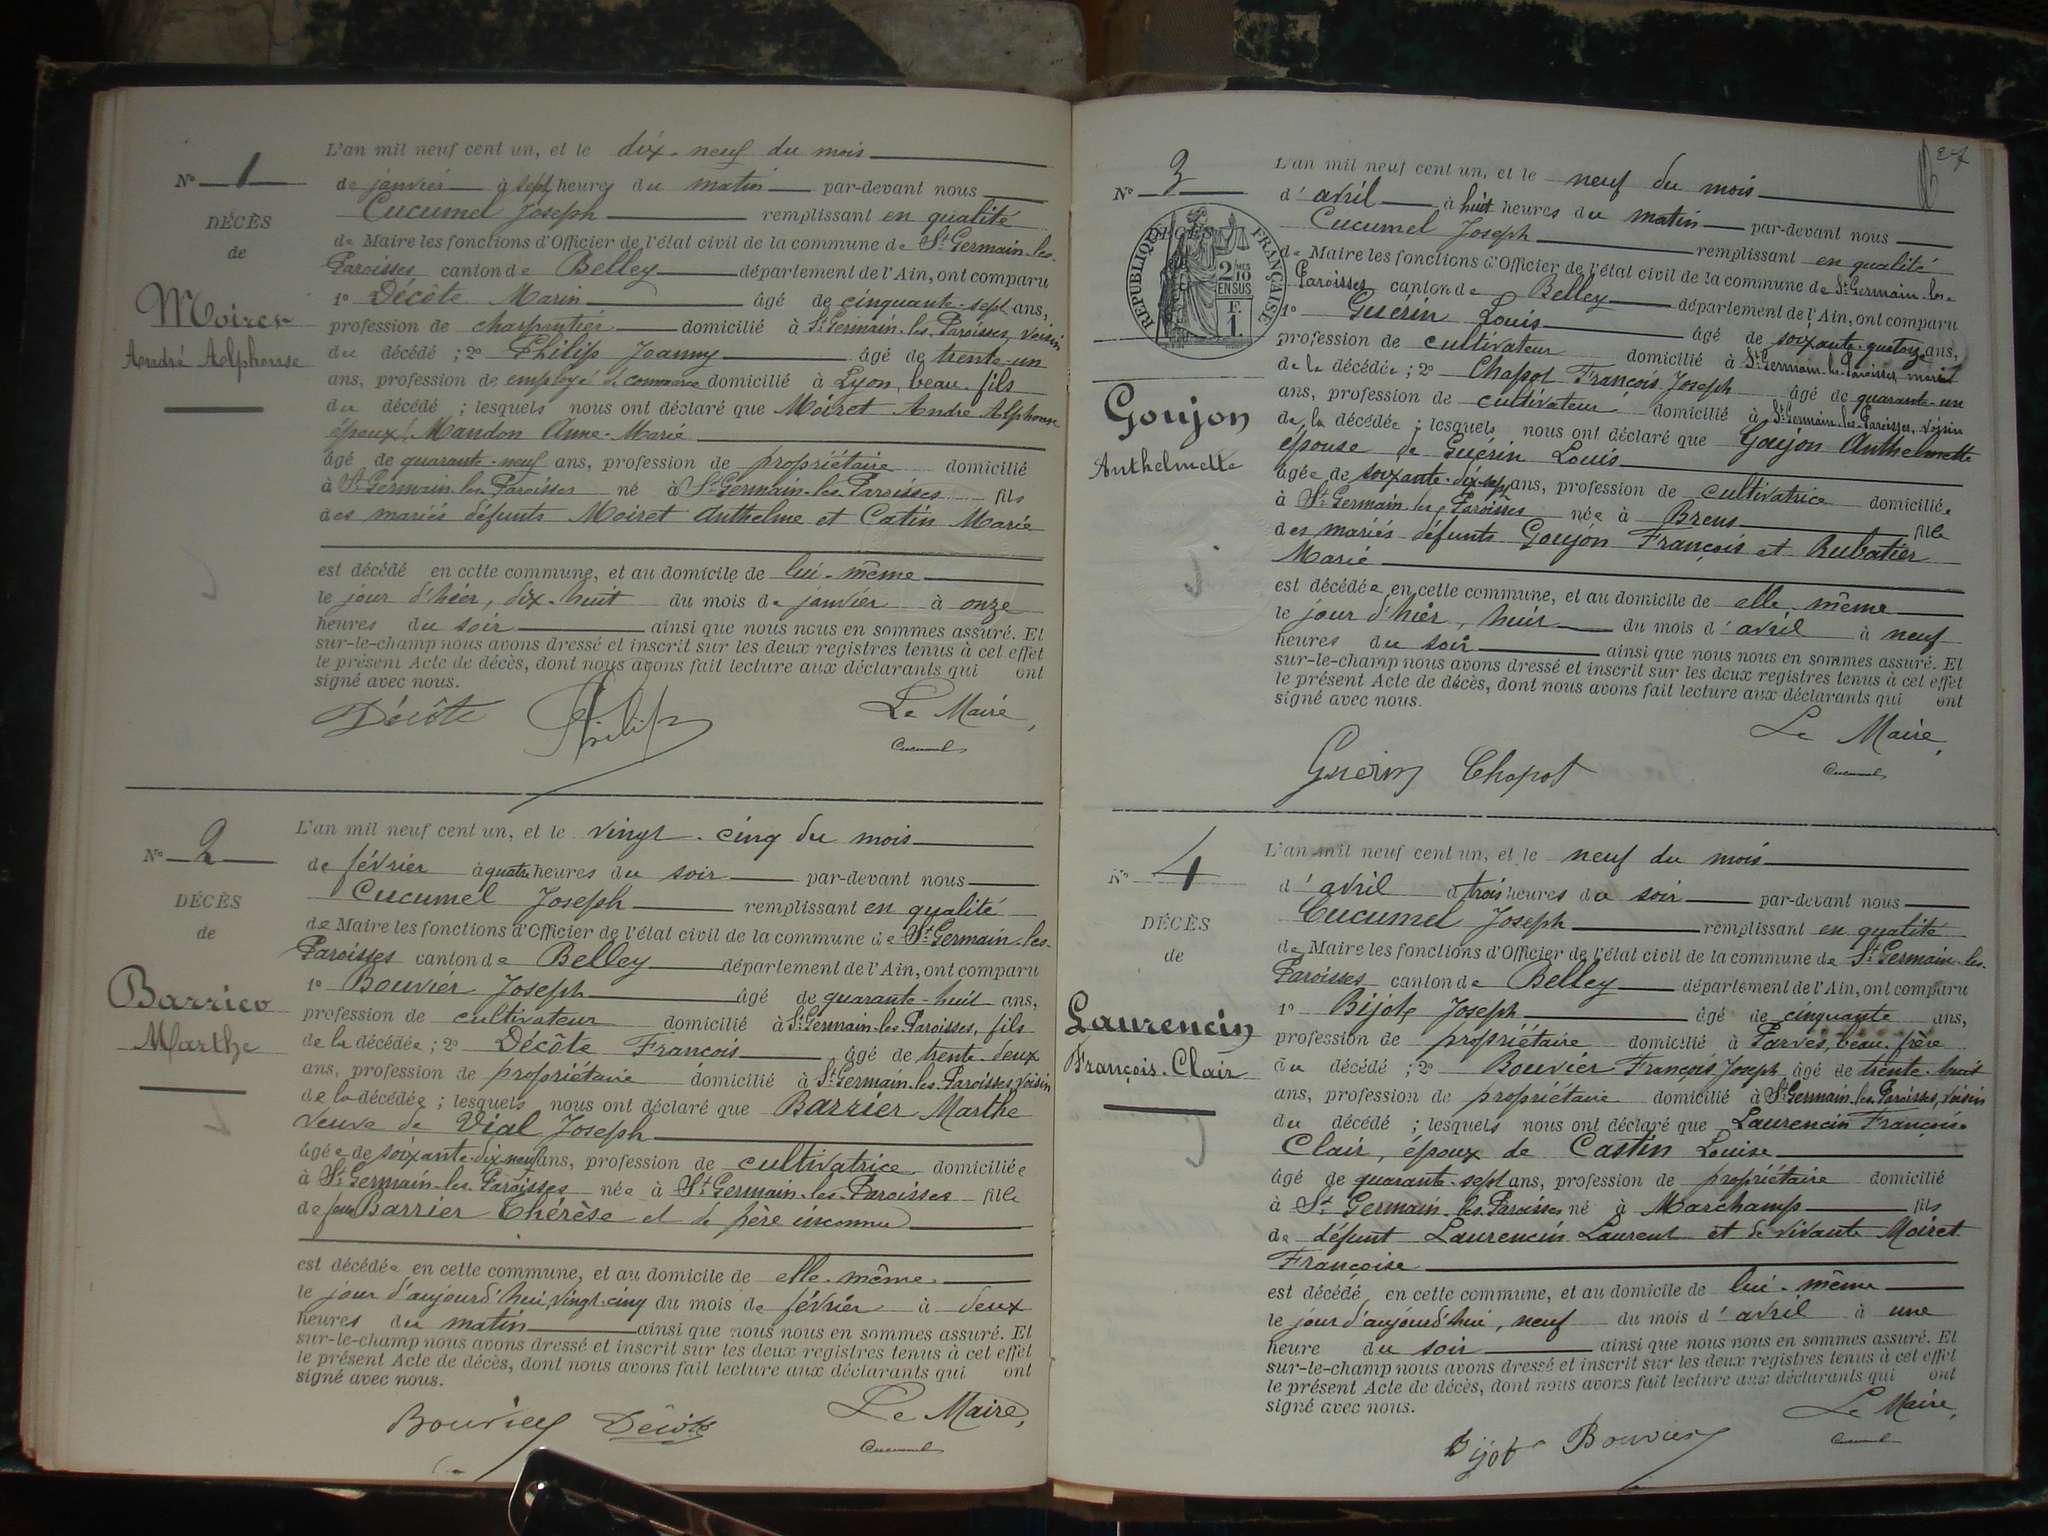 L'an mil neuf cent un, et le dix-neuf du mois
N° 1
de janvier à sept heures du matin par-devant nous
Cucumel Joseph remplissant en qualité
DÉCÈS
de
de Maire les fonctions d'Officier de l'état civil de la commune de St Germain-les-
Paroisses canton de Belley département de l'Ain, ont comparu
Moiret
André Alphonse
1° Décôte Marin âgé de cinquante-sept ans,
profession de charpentier domicilié à St Germain-les-Paroisses, voisin
du décédé ; 2° Philip Joanny âgé de trente-un
ans, profession de employé de commerce domicilié à Lyon, beau-fils
du décédé ; lesquels nous ont déclaré que Moiret André Alphonse
époux Mandon Anne-Marie
âgé de quarante-neuf ans, profession de propriétaire domicilié
à St Germain-les-Paroisses né à St Germain-les-Paroisses fils
des mariés défunts Moiret Anthelme et Catin Marie
est décédé en cette commune, et au domicile de lui-même
le jour d'hier, dix-huit du mois de janvier à onze
heures du soir ainsi que nous nous en sommes assuré. Et
sur-le-champ nous avons dressé et inscrit sur les deux registres tenus à cet effet
le présent Acte de décès, dont nous avons fait lecture aux déclarants qui ont
signé avec nous.
Décôte Philip Le Maire,
Cucumel
L'an mil neuf cent un, et le vingt-cinq du mois
N° 2
de février à quatre heures du soir par-devant nous
Cucumel Joseph remplissant en qualité
DÉCÈS
de
de Maire les fonctions d'Officier de l'état civil de la commune de St Germain-les-
Paroisses canton de Belley département de l'Ain, ont comparu
Barrier
Marthe
1° Bouvier Joseph âgé de quarante-huit ans,
profession de cultivateur domicilié à St Germain-les-Paroisses, fils
de la décédée ; 2° Décôte François âgé de trente-deux
ans, profession de propriétaire domicilié à St Germain-les-Paroisses, voisin
de la décédée ; lesquels nous ont déclaré que Barrier Marthe
veuve de Vial Joseph
âgée de soixante-dix-neuf ans, profession de cultivatrice domiciliée
à St Germain-les-Paroisses née à St Germain-les-Paroisses fille
de feue Barrier Thérèse et de père inconnu
est décédée en cette commune, et au domicile de elle-même
le jour d'aujourd'hui, vingt-cinq du mois de février à deux
heures du matin ainsi que nous nous en sommes assuré. Et
sur-le-champ nous avons dressé et inscrit sur les deux registres tenus à cet effet
le présent Acte de décès, dont nous avons fait lecture aux déclarants qui ont
signé avec nous.
Bouvier Décôte Le Maire,
Cucumel
27
L'an mil neuf cent un, et le neuf du mois
N° 3
d'avril à huit heures du matin par-devant nous
Cucumel Joseph remplissant en qualité
DÉCÈS
RÉPUBLIQUE FRANÇAISE
2 MES 10 EN SUS
F. 1.
de Maire les fonctions d'Officier de l'état civil de la commune de St Germain-les-
Paroisses canton de Belley département de l'Ain, ont comparu
1° Guérin Louis âgé de soixante-quatorze ans,
profession de cultivateur domicilié à St Germain-les-Paroisses, mari
de la décédée ; 2° Chapot François Joseph âgé de quarante-un
ans, profession de cultivateur domicilié à St Germain-les-Paroisses, voisin
Goujon
Anthelmette
de la décédée ; lesquels nous ont déclaré que Goujon Anthelmette
épouse de Guérin Louis
âgée de soixante-dix-sept ans, profession de cultivatrice domiciliée
à St Germain-les-Paroisses née à Brens fille
des mariés défunts Goujon François et Rubatier
Marie
est décédée en cette commune, et au domicile de elle-même
le jour d'hier, huit du mois d'avril à neuf
heures du soir ainsi que nous nous en sommes assuré. Et
sur-le-champ nous avons dressé et inscrit sur les deux registres tenus à cet effet
le présent Acte de décès, dont nous avons fait lecture aux déclarants qui ont
signé avec nous.
Le Maire,
Guérin Chapot
Cucumel
L'an mil neuf cent un, et le neuf du mois
N° 4
d'avril à trois heures du soir par-devant nous
Cucumel Joseph remplissant en qualité
DÉCÈS
de
de Maire les fonctions d'Officier de l'état civil de la commune de St Germain-les-
Paroisses canton de Belley département de l'Ain, ont comparu
Laurencin
François-Clair
1° Bijot Joseph âgé de cinquante ans,
profession de propriétaire domicilié à Parves, beau-frère
du décédé ; 2° Bouvier François Joseph âgé de trente-huit
ans, profession de propriétaire domicilié à St Germain-les-Paroisses, voisin
du décédé ; lesquels nous ont déclaré que Laurencin François-
Clair, époux de Castin Louise
âgé de quarante-sept ans, profession de propriétaire domicilié
à St Germain-les-Paroisses né à Marchamp fils
de défunt Laurencin Laurent et de vivante Moiret
Françoise
est décédé en cette commune, et au domicile de lui-même
le jour d'aujourd'hui, neuf du mois d'avril à une
heure du soir ainsi que nous nous en sommes assuré. Et
sur-le-champ nous avons dressé et inscrit sur les deux registres tenus à cet effet
le présent Acte de décès, dont nous avons fait lecture aux déclarants qui ont
signé avec nous.
Le Maire,
Bijot Bouvier
Cucumel